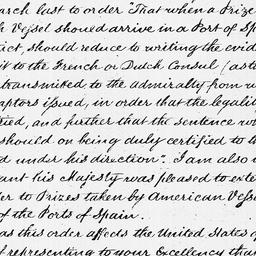 arch last to order That when a Prize
h Vessel should arrive in a Port of Sp
ict, should reduce to writing the evid
it to the French or Dutch Consul (as te
transmitted to the admiralty from w
aptors issued, in order that the legalit
ried, and further that the sentence wh
should on being duly certified to th
d under his direction". I am also i
ant his Majesty was pleased to exte
der to Prizes taken by American Vesse
of the Ports of Spain.
as this order affects the United States o
f representing to your Excellency that